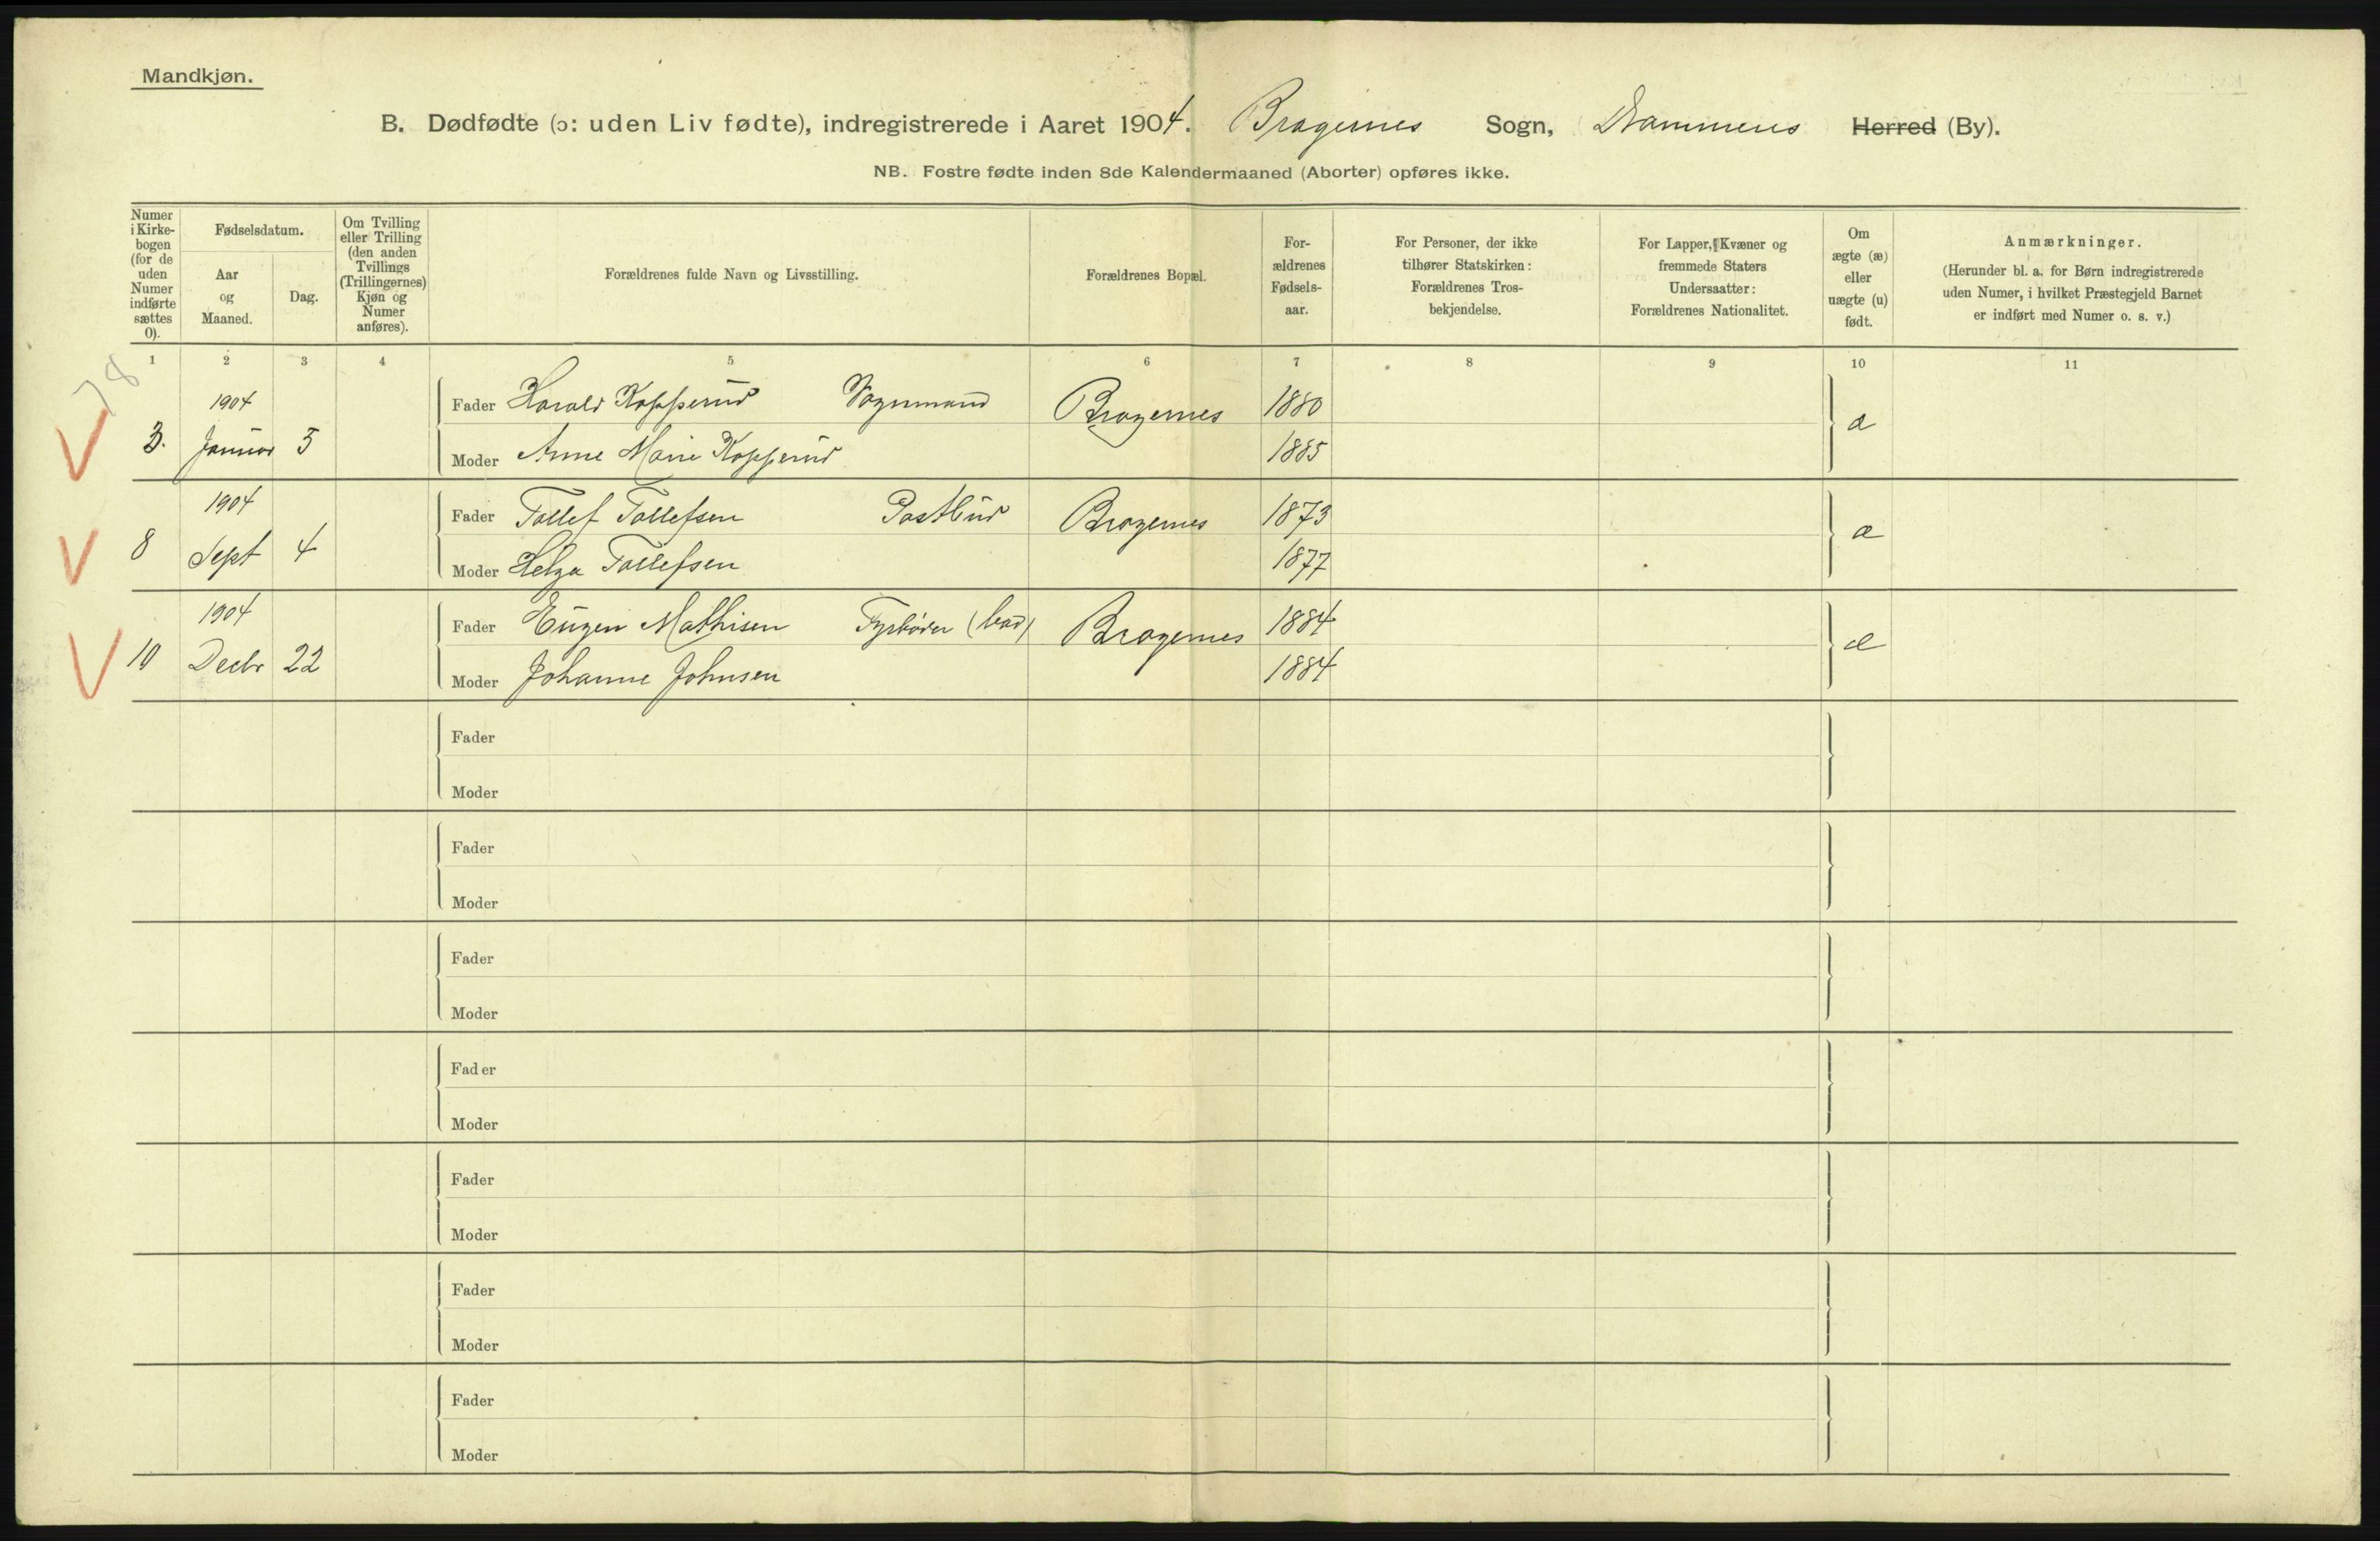 Mandkjøn.
B. Dødfødte (ɔ: uden Liv fødte), indregistrerede i Aaret 1904. Bragernes Sogn, Drammens Herred (By).
NB. Fostre fødte inden 8de Kalendermaaned (Aborter) opføres ikke.
Numer i Kirke-bogen (for de uden Numer indførte sættes 0).
Fødselsdatum.
Aar og Maaned.
Dag.
Om Tvilling eller Trilling (den anden Tvillings (Trillingernes) Kjøn og Numer anføres).
Forældrenes fulde Navn og Livsstilling.
Forældrenes Bopæl.
For-ældrenes Fødsels-aar.
For Personer, der ikke tilhører Statskirken: Forældrenes Tros-bekjendelse.
For Lapper, Kvæner og fremmede Staters Undersaatter: Forældrenes Nationalitet.
Om ægte (æ) eller uægte (u) født.
Anmærkninger.
(Herunder bl. a. for Børn indregistrerede uden Numer, i hvilket Præstegjeld Barnet er indført med Numer o. s. v.)
1 2 3 4 5 6 7 8 9 10 11
78
1904 Fader Harald Kopperud Vognmand Bragernes 1880
3. Januar 5 Moder Anne Marie Kopperud 1885 æ
1904 Fader Tollef Tollefsen Postbud Bragernes 1873
8 Sept 4 Moder Helga Tollefsen 1877 æ
1904 Fader Eugen Mathisen Fyrbøder Bragernes 1884
10 Decbr 22 Moder Johanne Johnsen 1884 æ
Fader
Moder
Fader
Moder
Fader
Moder
Fader
Moder
Fader
Moder
Fader
Moder
Fader
Moder